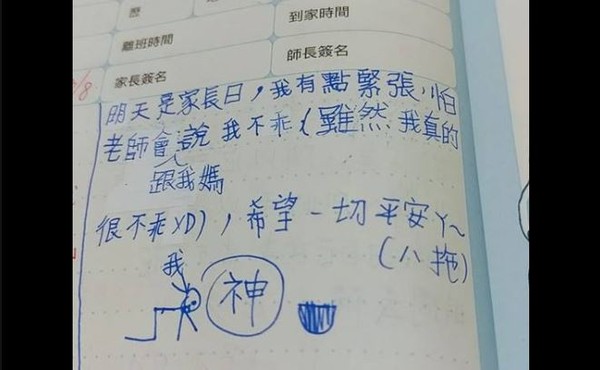 歷
到家時間
離班時間
師長簽名
家長簽名
明天是家長日，我有點緊張，怕
老師會說我不乖(雖然我真的
跟我媽
很不乖XD)，希望一切平安ㄚ~
(八拖)
我
神